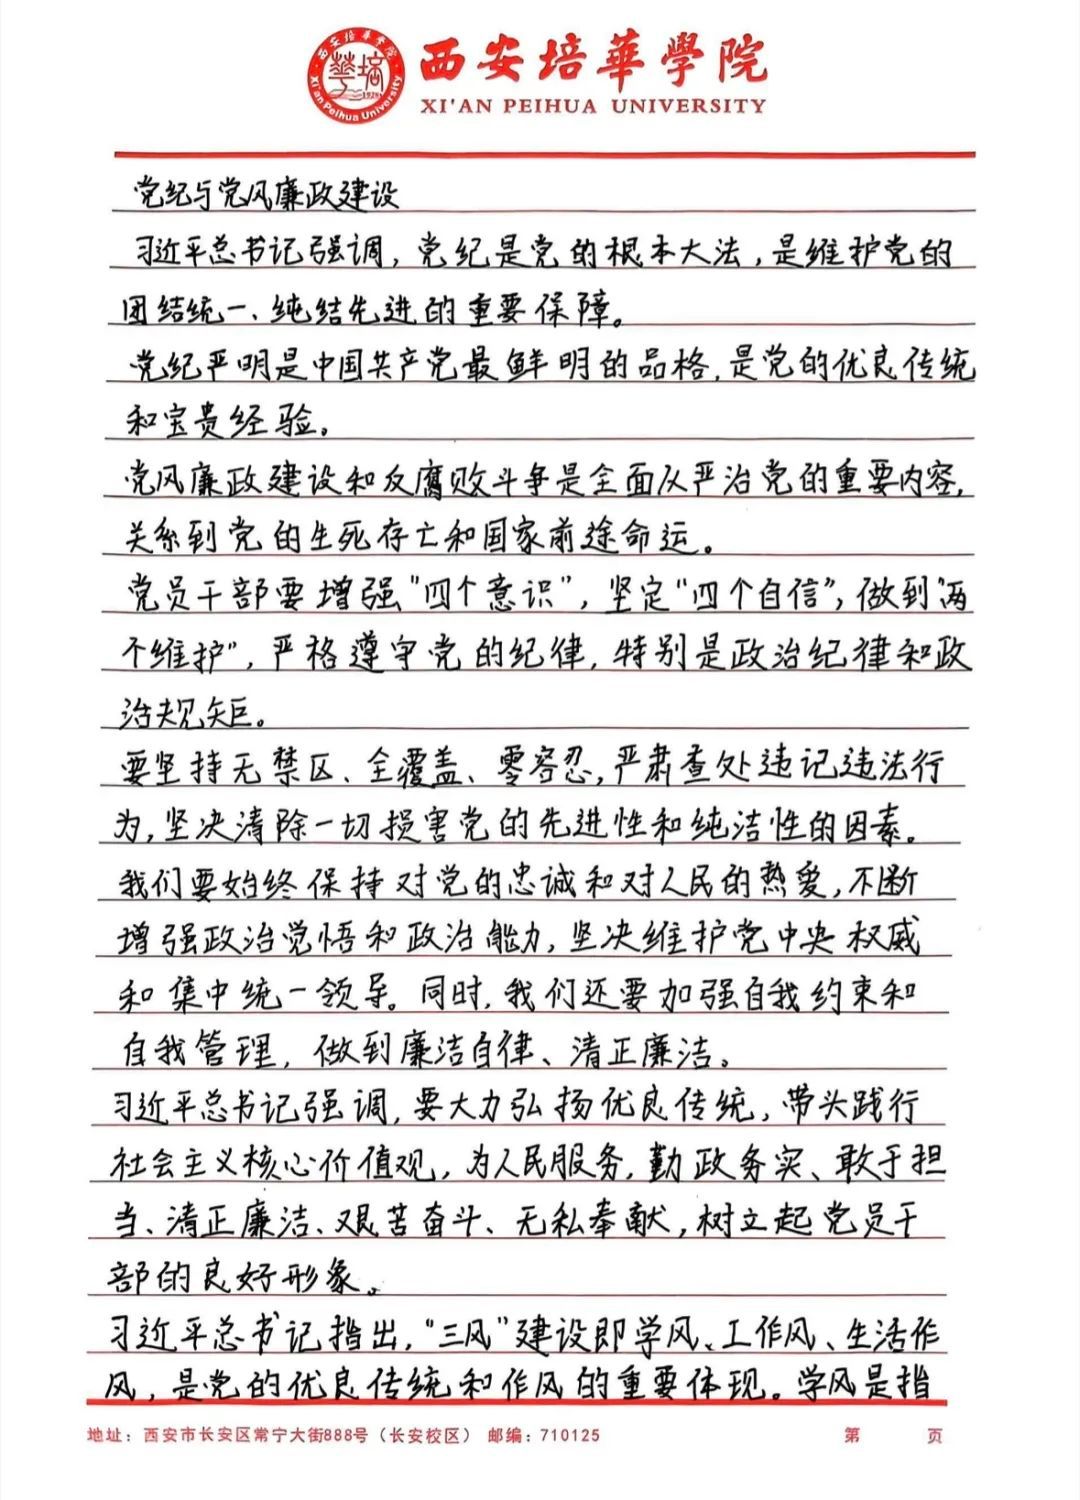 西安培華學院
XI'AN PEIHUA UNIVERSITY
西安培華學院
Xi'an Peihua University
1928
党纪与党风廉政建设
习近平总书记强调，党纪是党的根本大法，是维护党的
团结统一、纯结先进的重要保障。
党纪严明是中国共产党最鲜明的品格，是党的优良传统
和宝贵经验。
党风廉政建设和反腐败斗争是全面从严治党的重要内容，
关系到党的生死存亡和国家前途命运。
党员干部要增强“四个意识”，坚定“四个自信”，做到“两
个维护”，严格遵守党的纪律，特别是政治纪律和政
治规矩。
要坚持无禁区、全覆盖、零容忍，严肃查处违记违法行
为，坚决清除一切损害党的先进性和纯洁性的因素。
我们要始终保持对党的忠诚和对人民的热爱，不断
增强政治觉悟和政治能力，坚决维护党中央权威
和集中统一领导。同时，我们还要加强自我约束和
自我管理，做到廉洁自律、清正廉洁。
习近平总书记强调，要大力弘扬优良传统，带头践行
社会主义核心价值观，为人民服务，勤政务实、敢于担
当、清正廉洁、艰苦奋斗、无私奉献，树立起党员干
部的良好形象。
习近平总书记指出，“三风”建设即学风、工作风、生活作
风，是党的优良传统和作风的重要体现。学风是指
地址：西安市长安区常宁大街888号（长安校区） 邮编：710125 第 页